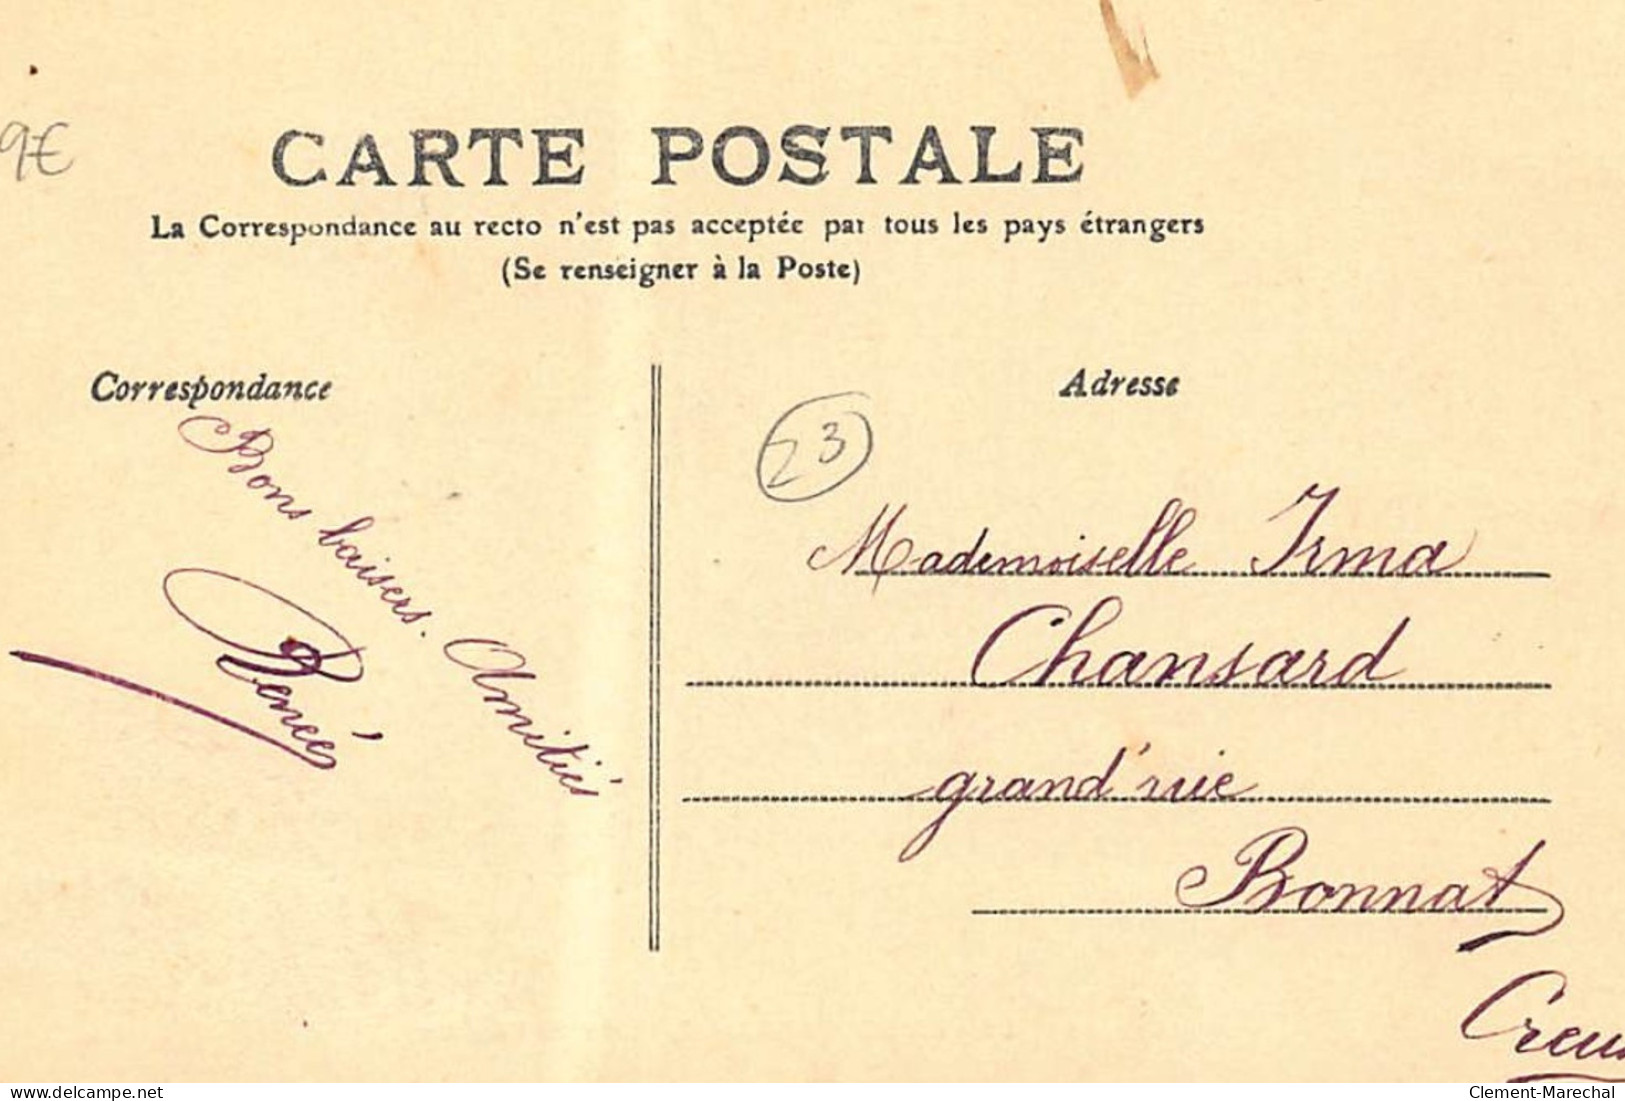 9€
CARTE POSTALE
La Correspondance au recto n'est pas acceptée par tous les pays étrangers
(Se renseigner à la Poste)
Correspondance
Bons baisers. Amitiés
Renée
Adresse
23
Mademoiselle Irma
Chansard
grand'rue
Bonnat
delcampe.net
Clement-Marechal